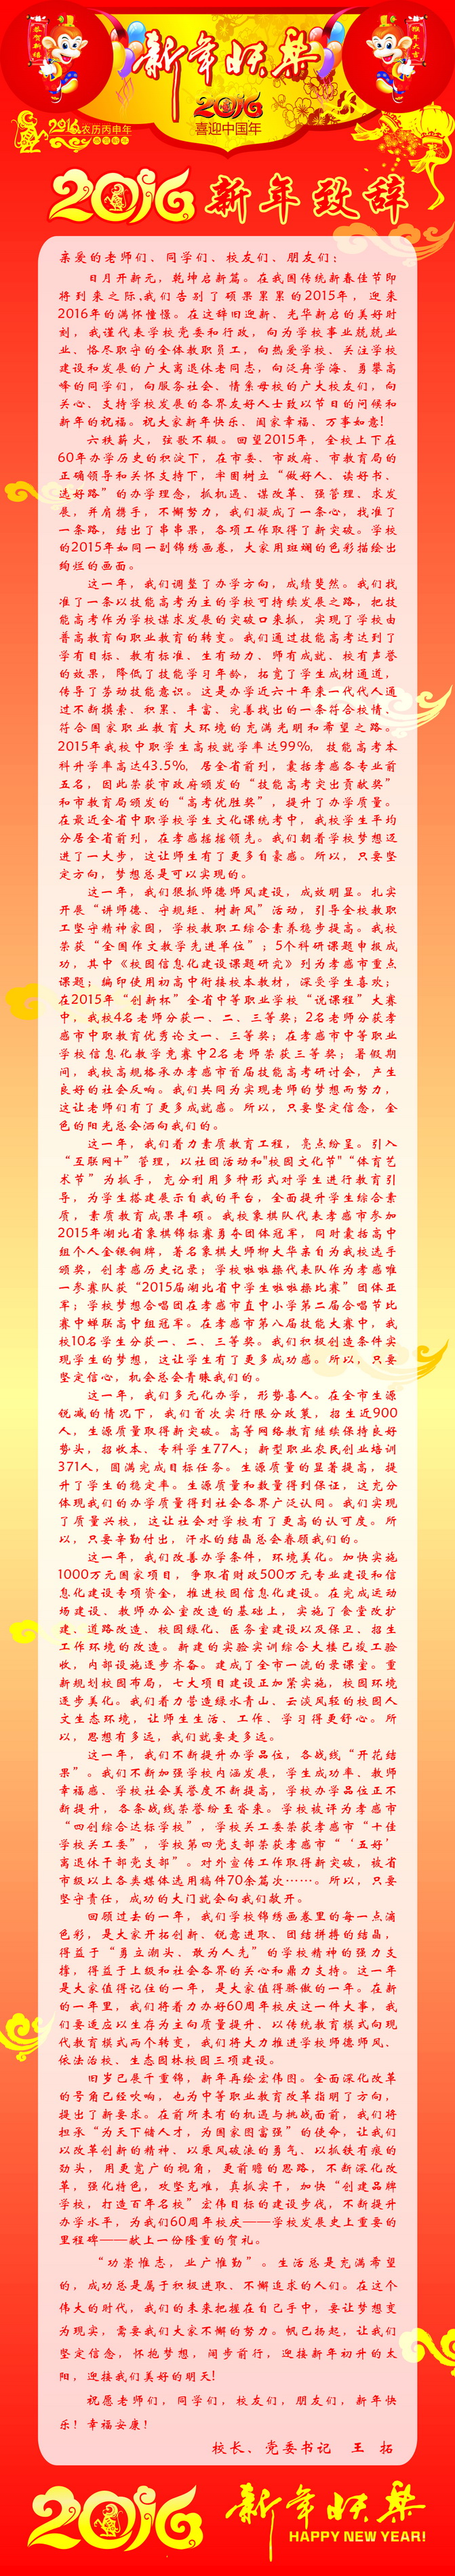 恭贺新禧
新年快乐
猴年大吉
2016
喜迎中国年
2016农历丙申年
2016新年致辞
亲爱的老师们、同学们、校友们、朋友们：
日月开新元，乾坤启新篇。在我国传统新春佳节即
将到来之际,我们告别了硕果累累的2015年，迎来
2016年的满怀憧憬。在这辞旧迎新、光华新启的美好时
刻，我谨代表学校党委和行政，向为学校事业兢兢业
业、恪尽职守的全体教职员工，向热爱学校、关注学校
建设和发展的广大离退休老同志，向泛舟学海、勇攀高
峰的同学们，向服务社会、情系母校的广大校友们，向
关心、支持学校发展的各界友好人士致以节日的问候和
新年的祝福。祝大家新年快乐、阖家幸福、万事如意!
六秩薪火，弦歌不辍。回望2015年，全校上下在
60年办学历史的积淀下，在市委、市政府、市教育局的
正确领导和关怀支持下，牢固树立“做好人、读好书、
选好路”的办学理念，抓机遇、谋改革、强管理、求发
展，并肩携手，不懈努力，我们凝成了一条心，找准了
一条路，结出了串串果，各项工作取得了新突破。学校
的2015年如同一副锦绣画卷，大家用斑斓的色彩描绘出
绚烂的画面。
这一年，我们调整了办学方向，成绩斐然。我们找
准了一条以技能高考为主的学校可持续发展之路，把技
能高考作为学校谋求发展的突破口来抓，实现了学校由
普高教育向职业教育的转变。我们通过技能高考达到了
学有目标、教有标准、生有动力、师有成就、校有声誉
的效果，降低了技能学习年龄，拓宽了学生成材通道，
传导了劳动技能意识。这是办学近六十年来一代代人通
过不断摸索、积累、丰富、完善找出的一条符合校情、
符合国家职业教育大环境的充满光明和希望之路。
2015年我校中职学生高校就学率达99%，技能高考本
科升学率高达43.5%，居全省前列，囊括孝感各专业前
五名，因此荣获市政府颁发的“技能高考突出贡献奖”
和市教育局颁发的“高考优胜奖”，提升了办学质量。
在最近全省中职学校学生文化课统考中，我校学生平均
分居全省前列，在孝感摇摇领先。我们朝着学校梦想迈
进了一大步，这让师生有了更多自豪感。所以，只要坚
定方向，梦想总是可以实现的。
这一年，我们狠抓师德师风建设，成效明显。扎实
开展“讲师德、守规矩、树新风”活动，引导全校教职
工坚守精神家园，学校教职工综合素养稳步提高。我校
荣获“全国作文教学先进单位”；5个科研课题申报成
功，其中《校园信息化建设课题研究》列为孝感市重点
课题；编印使用初高中衔接校本教材，深受学生喜欢；
在2015年“创新杯”全省中等职业学校“说课程”大赛
中，我校4名老师分获一、二、三等奖；2名老师分获孝
感市中职教育优秀论文一、三等奖；在孝感市中等职业
学校信息化教学竞赛中2名老师荣获三等奖；暑假期
间，我校高规格承办孝感市首届技能高考研讨会，产生
良好的社会反响。我们共同为实现老师的梦想而努力，
这让老师们有了更多成就感。所以，只要坚定信念，金
色的阳光总会洒向我们的。
这一年，我们着力素质教育工程，亮点纷呈。引入
“互联网+”管理，以社团活动和"校园文化节"“体育艺
术节”为抓手，充分利用多种形式对学生进行教育引
导，为学生搭建展示自我的平台，全面提升学生综合素
质，素质教育成果丰硕。我校象棋队代表孝感市参加
2015年湖北省象棋锦标赛勇夺团体冠军，同时囊括高中
组个人金银铜牌，著名象棋大师柳大华亲自为我校选手
颁奖，创孝感历史记录；学校啦啦操代表队作为孝感唯
一参赛队获“2015届湖北省中学生啦啦操比赛”团体亚
军；学校梦想合唱团在孝感市直中小学第二届合唱节比
赛中蝉联高中组冠军。在孝感市第八届技能大赛中，我
校10名学生分获一、二、三等奖。我们积极创造条件实
现学生的梦想，这让学生有了更多成功感。所以，只要
坚定信心，机会总会青睐我们的。
这一年，我们多元化办学，形势喜人。在全市生源
锐减的情况下，我们首次实行限分政策，招生近900
人，生源质量取得新突破。高等网络教育继续保持良好
势头，招收本、专科学生77人；新型职业农民创业培训
371人，圆满完成目标任务。生源质量的显著提高，提
升了学生的稳定率。生源质量和数量得到保证，这充分
体现我们的办学质量得到社会各界广泛认同。我们实现
了质量兴校，这让社会对学校有了更高的认可度。所
以，只要辛勤付出，汗水的结晶总会眷顾我们的。
这一年，我们改善办学条件，环境美化。加快实施
1000万元国家项目，争取省财政500万元专业建设和信
息化建设专项资金，推进校园信息化建设。在完成运动
场建设、教师办公室改造的基础上，实施了食堂改扩
建、道路改造、校园绿化、医务室建设以及保卫、招生
工作环境的改造。新建的实验实训综合大楼已竣工验
收，内部设施逐步齐备。建成了全市一流的录课室。重
新规划校园布局，七大项目建设正加紧实施，校园环境
逐步美化。我们着力营造绿水青山、云淡风轻的校园人
文生态环境，让师生生活、工作、学习得更舒心。所
以，思想有多远，我们就要走多远。
这一年，我们不断提升办学品位，各战线“开花结
果”。我们不断加强学校内涵发展，学生成功率、教师
幸福感、学校社会美誉度不断提高，学校办学品位正不
断提升，各条战线荣誉纷至沓来。学校被评为孝感市
“四创综合达标学校”，学校关工委荣获孝感市“十佳
学校关工委”，学校第四党支部荣获孝感市“‘五好’
离退休干部党支部”。对外宣传工作取得新突破，被省
市级以上各类媒体选用稿件70余篇次……。所以，只要
坚守责任，成功的大门就会向我们敞开。
回顾过去的一年，我们学校锦绣画卷里的每一点滴
色彩，是大家开拓创新、锐意进取、团结拼搏的结晶，
得益于“勇立潮头、敢为人先”的学校精神的强力支
撑，得益于上级和社会各界的关心和鼎力支持。这一年
是大家值得记住的一年，是大家值得骄傲的一年。在新
的一年里，我们将着力办好60周年校庆这一件大事，我
们要适应以生存为主向质量提升、以传统教育模式向现
代教育模式两个转变，我们将大力推进学校师德师风、
依法治校、生态园林校园三项建设。
旧岁已展千重锦，新年再绘宏伟图。全面深化改革
的号角已经吹响，也为中等职业教育改革指明了方向，
提出了新要求。在前所未有的机遇与挑战面前，我们将
担承“为天下储人才，为国家图富强”的使命，让我们
以改革创新的精神、以乘风破浪的勇气、以抓铁有痕的
劲头，用更宽广的视角，更前瞻的思路，不断深化改
革，强化特色，攻坚克难，真抓实干，加快“创建品牌
学校，打造百年名校”宏伟目标的建设步伐，不断提升
办学水平，为我们60周年校庆——学校发展史上重要的
里程碑——献上一份隆重的贺礼。
“功崇惟志，业广惟勤”。生活总是充满希望
的，成功总是属于积极进取、不懈追求的人们。在这个
伟大的时代，我们的未来把握在自己手中，要让梦想变
为现实，需要我们大家不懈的努力。帆已扬起，让我们
坚定信念，怀抱梦想，阔步前行，迎接新年初升的太
阳，迎接我们美好的明天!
祝愿老师们，同学们，校友们，朋友们，新年快
乐！幸福安康！
校长、党委书记 王 拓
2016
新年快乐
HAPPY NEW YEAR!